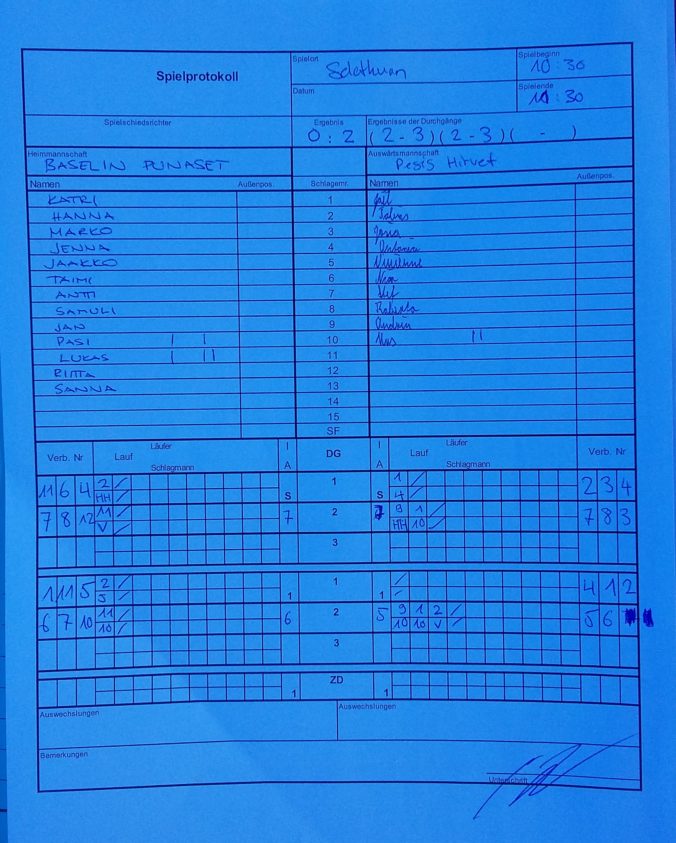 Spielprotokoll
Spielort
Spielbeginn
10:30
Datum
Spielende
11:30
Spielschiedsrichter
Ergebnis
0:2
Ergebnisse der Durchgänge
(2-3)(2-3)( - )
Heimmannschaft
BASELIN PUNASET
Auswärtsmannschaft
Pesis Hirvet
Namen Außenpos. Schlagernr. Namen Außenpos.
KATRI 1
HANNA 2
MARKO 3
JENNA 4
JAAKKO 5
TAIMI 6
ANTTI 7
SAMULI 8
JAN 9
PASI | | 10 ||
LUKAS | || 11
RIITTA 12
SANNA 13
14
15
SF
Läufer I I Läufer
Verb. Nr Lauf DG Lauf Verb. Nr
Schlagmann A A Schlagmann
11 6 4 2 / 1 1 / 2 3 4
HH / S S 4 /
7 8 12 11 / 7 2 9 1 / 7 8 3
V / HH 10 /
3
1 11 5 2 / 1 / 4 1 2
5 / 1 1 /
6 7 10 11 / 6 2 5 9 1 2 / 5 6
10 / 10 10 V /
3
ZD
1 1
Auswechslungen
Auswechslungen
Bemerkungen
Unterschrift